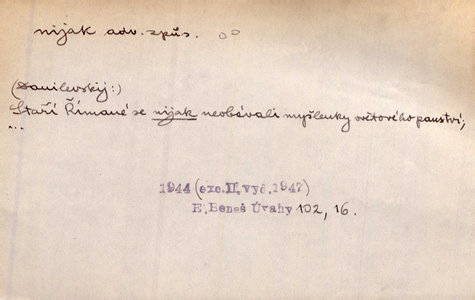 nijak adv. způs. oo
(Danilevskij:)
Staří Římané se nijak neobávali myšlenky světového panství;
...
1944 (exc. II. vyd. 1947)
E. Beneš Úvahy 102, 16.